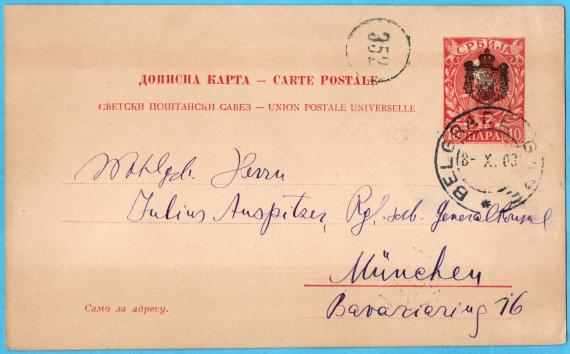 352
СРБИЈА
ДОПИСНА КАРТА — CARTE POSTALE
СВЕТСКИ ПОШТАНСКИ САВЕЗ — UNION POSTALE UNIVERSELLE
10 ПАРА 10
BELGRADE
8- X. 03
Wohlgeb. Herrn
Julius Auspitzer, Kgl. serb. Generalkonsul
München
Bavariaring 26
Само за адресу.